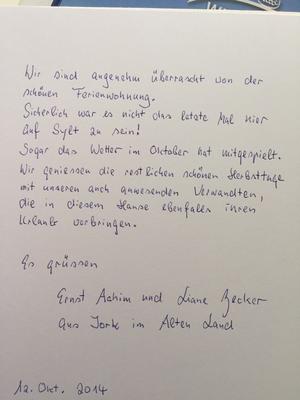 Wir sind angenehm überrascht von der
schönen Ferienwohnung.
Sicherlich war es nicht das letzte Mal hier
auf Sylt zu sein!
Sogar das Wetter im Oktober hat mitgespielt.
Wir geniessen die restlichen schönen Herbsttage
mit unseren auch anwesenden Verwandten,
die in diesem Hause ebenfalls ihren
Urlaub verbringen.
Es grüssen
Ernst Achim und Liane Becker
aus Jork im Alten Land
12. Okt. 2014